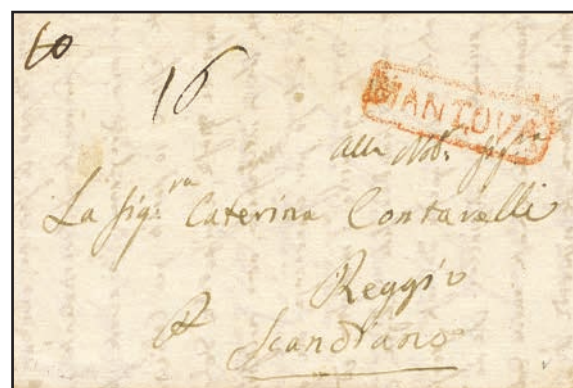 60
16
MANTOVA
alla Nob:
La Sig:ra Caterina Contarelli
Reggio
P
Scandiano